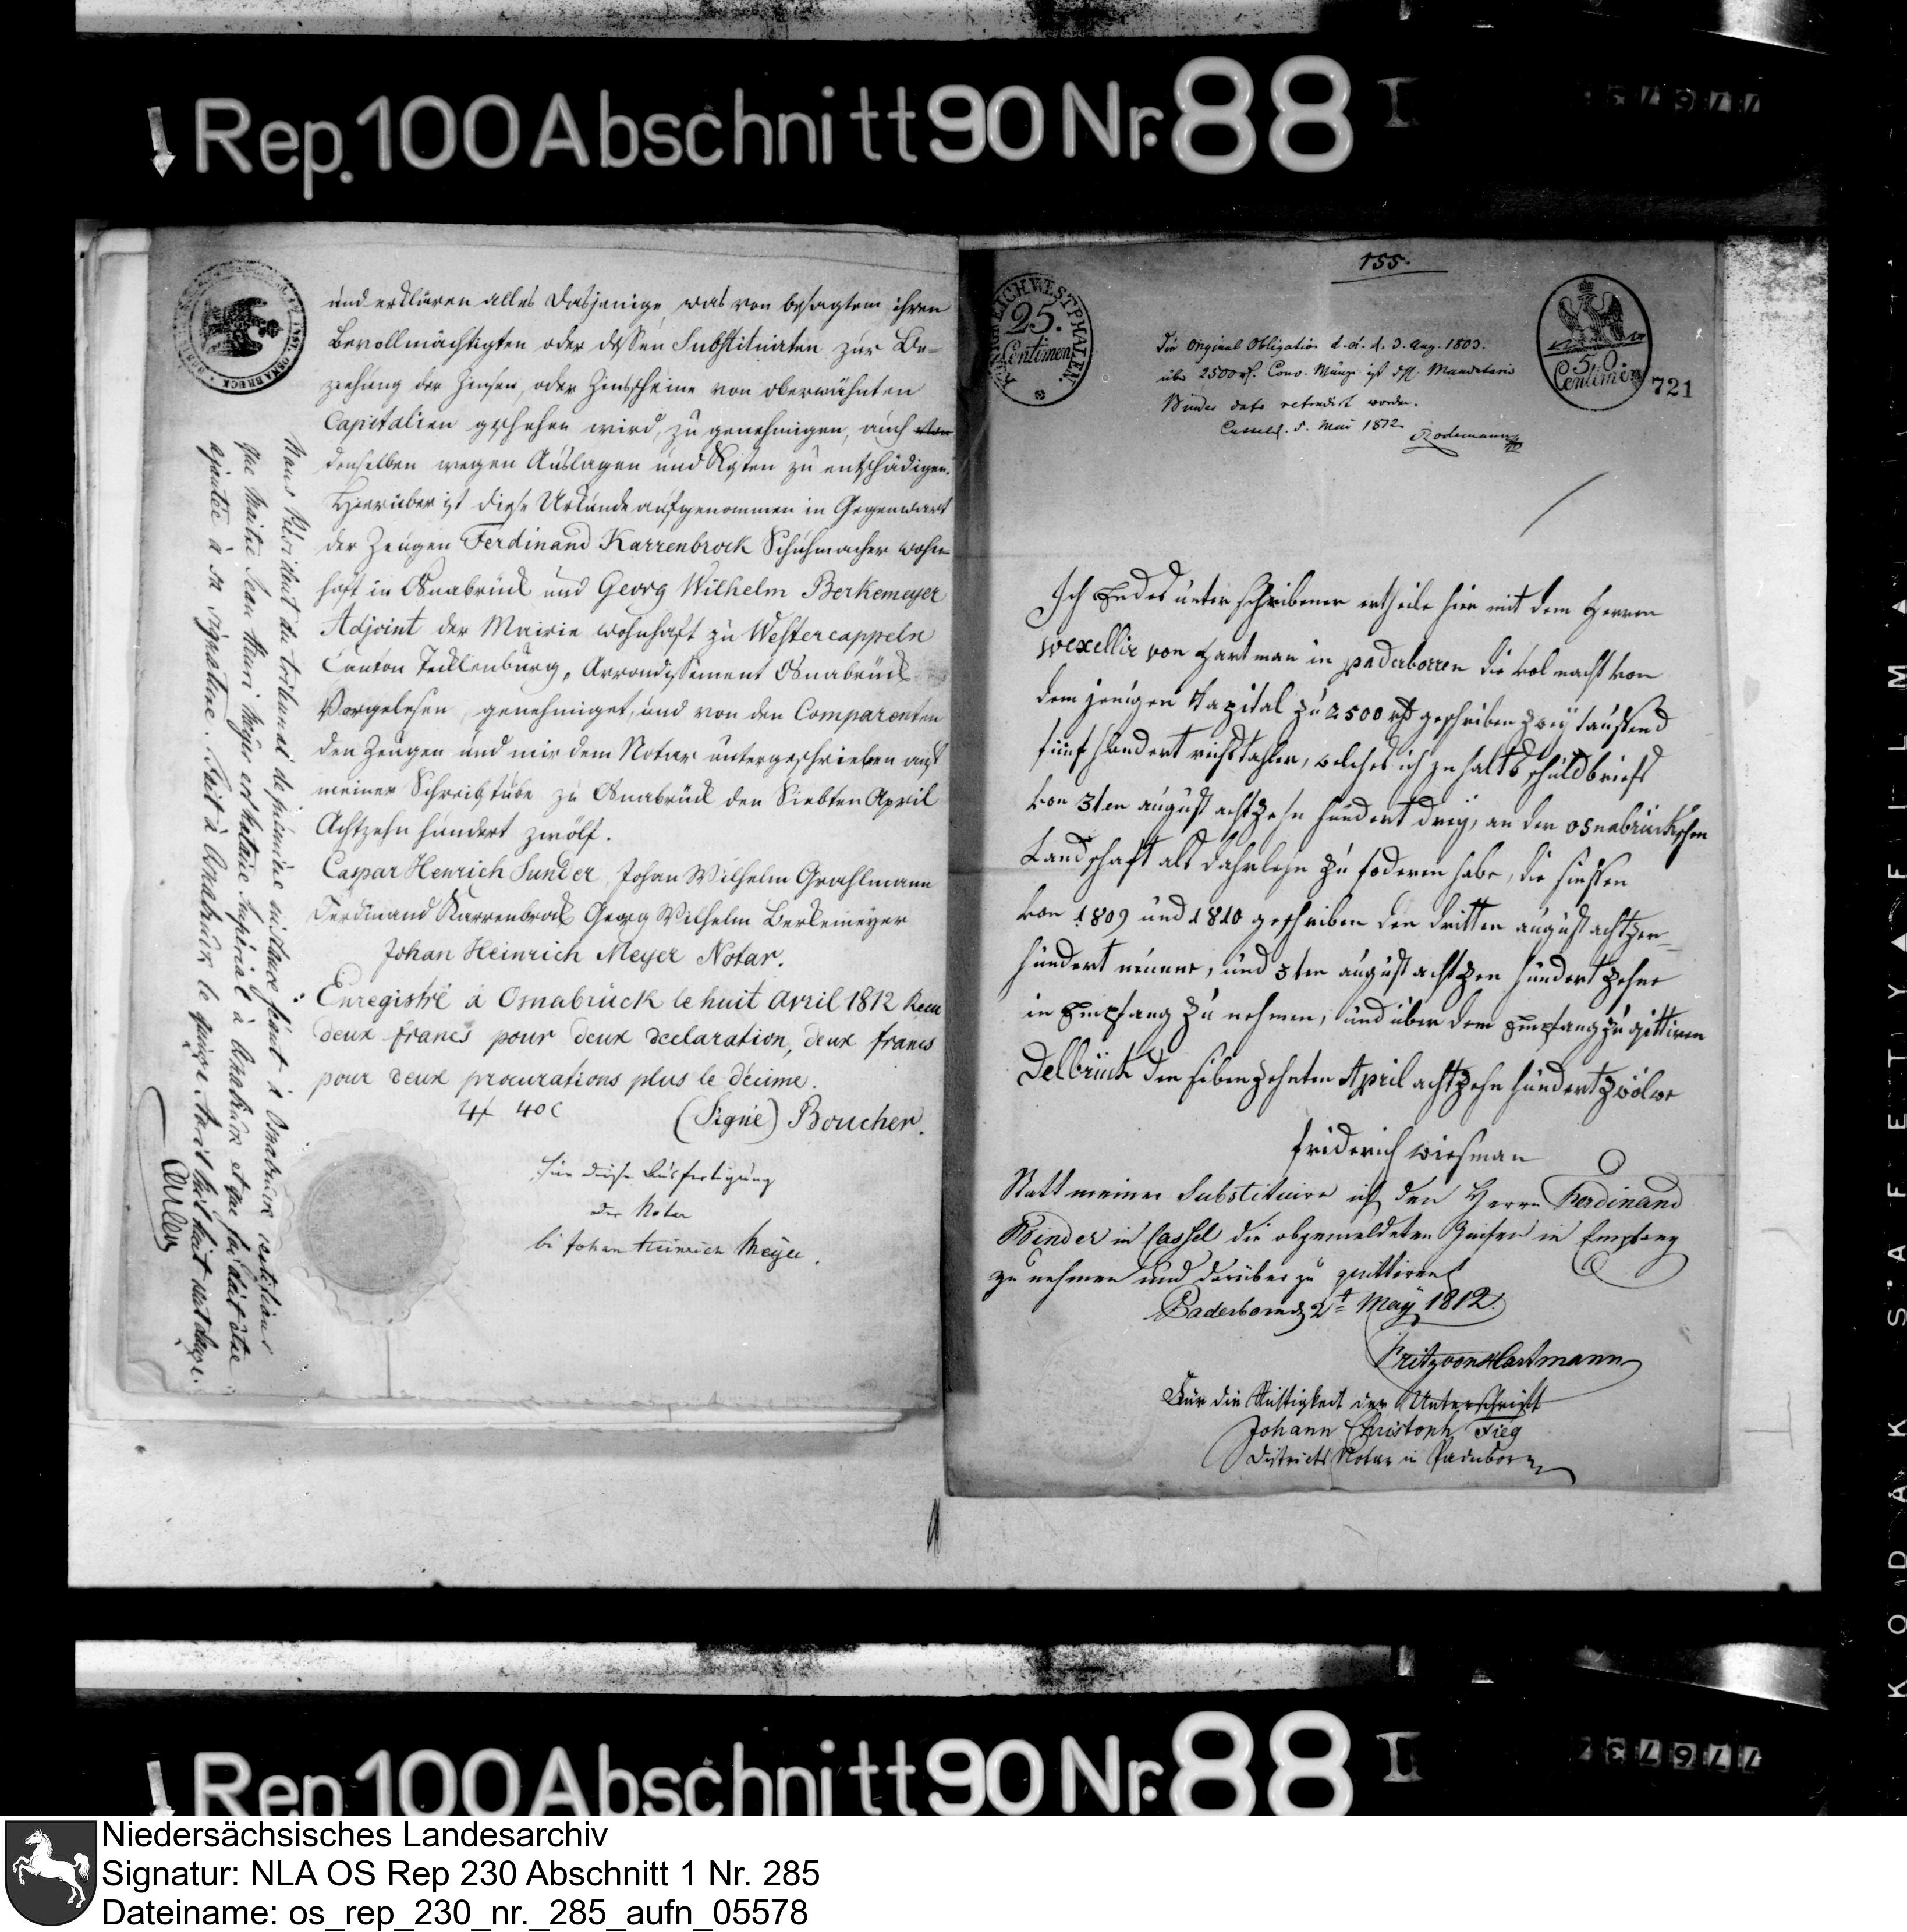 Rep. 100 Abschnitt 90 Nr. 88 I
und erklären alles dasjenige, was von besagtem ihren
Bevollmächtigten oder dessen Substituirten zur Be-
ziehung der Zinsen, oder Zinsscheine von oberwähnten
Capitalien geschehen wird, zu genehmigen, auch
denselben wegen Auslagen und Kosten zu entschädigen.
Hierüber ist diese Urkunde aufgenommen in Gegenwart
der Zeugen Ferdinand Karrenbrock Schuhmacher wohn-
haft in Osnabrück und Georg Wilhelm Berkemeyer
Adjoint der Mairie wohnhaft zu Westercappeln
Canton Tecklenburg, Arrondissement Osnabrück
Vorgelesen, genehmiget, und von den Comparenten
den Zeugen und mir dem Notar untergeschrieben auf
meiner Schreibstube zu Osnabrück den Siebten April
Achtzehn hundert zwölf.
Caspar Henrich Sunder Johan Wilhelm Grahlmann
Ferdinand Karrenbrock Georg Wilhelm Berkemeyer
Johan Heinrich Meyer Notar.
Enregistré à Osnabrück le huit Avril 1812 Recu
deux francs pour deux declaration, deux francs
pour deux procurations plus le décime.
4f 40c (Signé) Boucher.
Für diese Ausfertigung
der Notar
Johan Heinrich Meyer.
Nous Président du tribunal de première instance séant à Osnabruck certifions
que Maître Jean Henri Meyer est Notaire Impérial à Osnabruck et que foi doit être
ajoutée à sa signature. Fait à Osnabruck le quinze Avril mil huit cent douze.
155.
KÖNIGREICH WESTPHALEN.
25.
Centimen
50.
Centimen
721
Die Original Obligation d. d. 3. Aug. 1803.
über 2500 rt. Conv. Münze ist dH. Mandatario
Binder dato retradirt worden.
Cassel d. 5. Mai 1812
Rodemann
Ich Endes unter schribener ertheile hier mit dem Herren
von Hartman in paderborren die volmacht von
dem jenigen Kapital zu 2500 rt geschriben zwey taussend
fünf hundert reichstahler, welches ich inhalts schuldbriefs
von 3ten august achtzehn hundert drey, an der osnabrückschen
Landschaft als dahrlehn zu foderen habe, die sinssen
von 1809 und 1810 geschriben den dritten august achtzen-
hundert neunne, und 3ten august achtzen hundert zehne
in Empfang zu nehmen, und über dem Empfang zu qittiren
Delbrück den sibenzehnten April achtzehn hundert zwölwe
friderich wiesman
Statt meiner Substituire ich den Herrn Ferdinand
Binder in Cassel die obgemeldeten Zinsen in Empfang
zu nehmen und darüber zu quittiren
Paderborn d 2t May 1812.
Fritz von Hartmann
Für die Richtigkeit der Unterschrift
Johann Christoph Fieg
Districts Notar in Paderborn
Rep. 100 Abschnitt 90 Nr. 88 I
Niedersächsisches Landesarchiv
Signatur: NLA OS Rep 230 Abschnitt 1 Nr. 285
Dateiname: os_rep_230_nr._285_aufn_05578